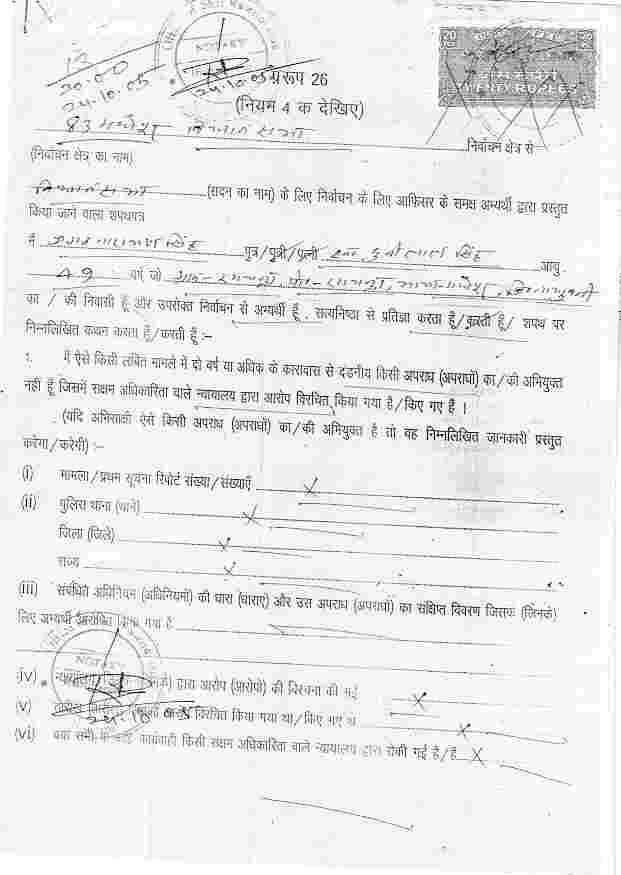 NOTARY
20.00
24.10.05
24.10.05
TWENTY RUPEES
प्ररूप 26
(नियम 4 क देखिए)
83 विधान सभा निर्वाचन क्षेत्र से
(निर्वाचन क्षेत्र का नाम)
विधान सभा (सदन का नाम) के लिए निर्वाचन के लिए आफिसर के समक्ष अभ्यर्थी द्वारा प्रस्तुत
किया जाने वाला शपथपत्र
मैं नारायण सिंह पुत्र/पुत्री/पत्नी लाल सिंह आयु
49 वर्ष जो
का / की निवासी हूँ और उपरोक्त निर्वाचन से अभ्यर्थी हूँ , सत्यनिष्ठा से प्रतिज्ञा करता हूँ/करती हूँ/ शपथ पर
निम्नलिखित कथन करता हूँ/करती हूँ :-
1. मैं ऐसे किसी लंबित मामले में दो वर्ष या अधिक के कारावास से दंडनीय किसी अपराध (अपराधों) का/की अभियुक्त
नहीं हूँ जिसमें सक्षम अधिकारिता वाले न्यायालय द्वारा आरोप विरचित किया गया है/किए गए हैं ।
(यदि अभिसाक्षी ऐसे किसी अपराध (अपराधों) का/की अभियुक्त है तो वह निम्नलिखित जानकारी प्रस्तुत
करेगा/करेगी) :-
(i) मामला/प्रथम सूचना रिपोर्ट संख्या/संख्याएँ X
(ii) पुलिस थाना (थाने) X
जिला (जिले) X
राज्य X
(iii) संबंधित अधिनियम (अधिनियमों) की धारा (धाराएं) और उस अपराध (अपराधों) का संक्षिप्त विवरण जिसके (जिनके)
लिए अभ्यर्थी आरोपित किया गया है
NOTARY
(iv) न्यायालय द्वारा आरोप (आरोपों) की विरचना की गई X
(v) तारीख विरचित किया गया था/किए गए थे X
24.10.05
(vi) क्या सभी कार्यवाही किसी सक्षम अधिकारिता वाले न्यायालय द्वारा रोकी गई है/हैं X